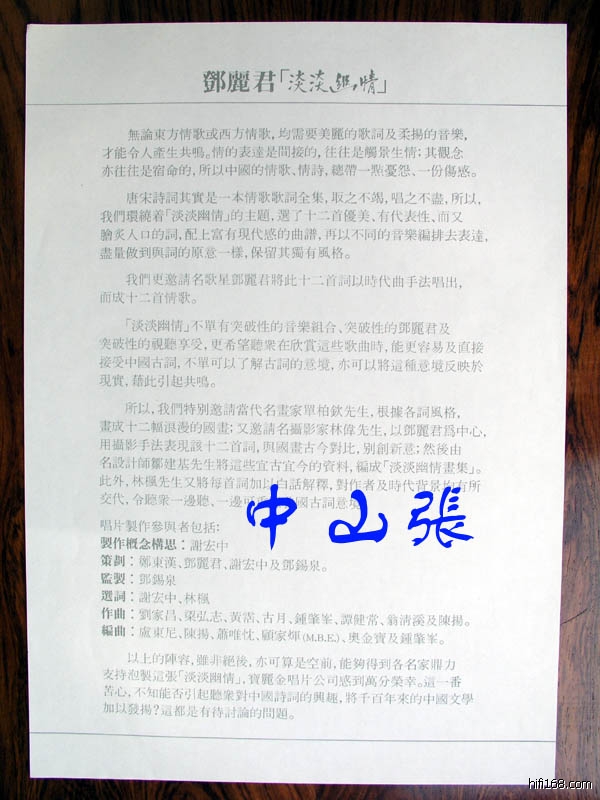 鄧麗君「淡淡幽情」
無論東方情歌或西方情歌,均需要美麗的歌詞及柔揚的音樂,
才能令人產生共鳴。情的表達是間接的,往往是觸景生情;其觀念
亦往往是宿命的,所以中國的情歌、情詩,總帶一點憂怨、一份傷感。
唐宋詩詞其實是一本情歌歌詞全集,取之不竭,唱之不盡,所以,
我們環繞着「淡淡幽情」的主題,選了十二首優美、有代表性、而又
膾炙人口的詞,配上富有現代感的曲譜,再以不同的音樂編排去表達,
盡量做到與詞的原意一樣,保留其獨有風格。
我們更邀請名歌星鄧麗君將此十二首詞以時代曲手法唱出,
而成十二首情歌。
「淡淡幽情」不單有突破性的音樂組合、突破性的鄧麗君及
突破性的視聽享受,更希望聽衆在欣賞這些歌曲時,能更容易及直接
接受中國古詞,不單可以了解古詞的意境,亦可以將這種意境反映於
現實,藉此引起共鳴。
所以,我們特別邀請當代名畫家單柏欽先生,根據各詞風格,
畫成十二幅浪漫的國畫;又邀請名攝影家林偉先生,以鄧麗君爲中心,
用攝影手法表現該十二首詞,與國畫古今對比,別創新意;然後由
名設計師鄒建基先生將這些宜古宜今的資料,編成「淡淡幽情畫集」。
此外,林楓先生又將每首詞加以白話解釋,對作者及時代背景均有所
交代,令聽衆一邊聽,一邊可 國古詞意境
中山張
唱片製作參與者包括:
製作概念構思:謝宏中
策劃:鄭東漢、鄧麗君、謝宏中及鄧錫泉。
監製:鄧錫泉
選詞:謝宏中、林楓
作曲:劉家昌、梁弘志、黃霑、古月、鍾肇峯、譚健常、翁清溪及陳揚。
編曲:盧東尼、陳揚、蕭唯忱、顧家煇(M.B.E.)、奧金寶及鍾肇峯。
以上的陣容,雖非絕後,亦可算是空前,能夠得到各名家鼎力
支持泡製這張「淡淡幽情」,寶麗金唱片公司感到萬分榮幸。這一番
苦心,不知能否引起聽衆對中國詩詞的興趣,將千百年來的中國文學
加以發揚?這都是有待討論的問題。
hifi168.com